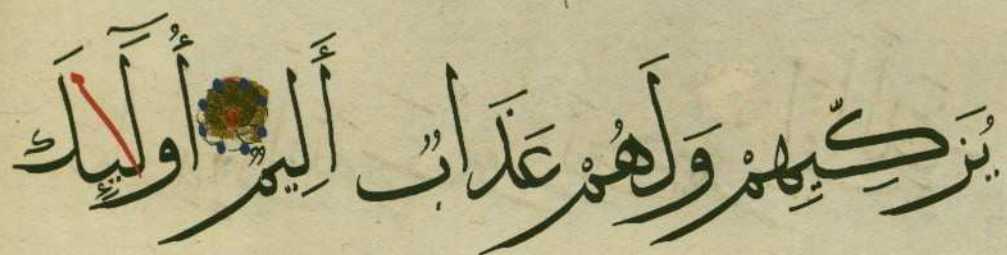 يُزَكِّيهِمْ وَلَهُمْ عَذَابٌ أَلِيمٌ أُولَٰئِكَ